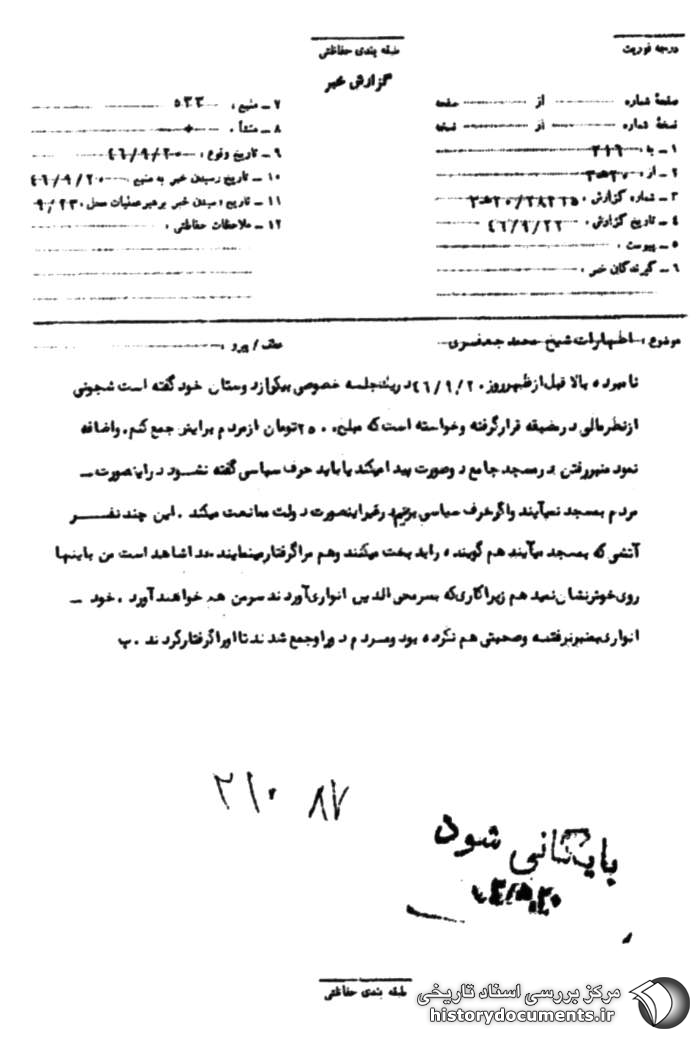 درجه فوریت
طبقه بندی حفاظتی
گزارش خبر
صفحهٔ شماره از صفحه
نسخهٔ شماره از نسخه
۱ ـ به : ۳۱۶
۲ ـ از : ۲۰ ه ۳
۳ ـ شماره گزارش : ۲۸۲۶۵ / ۲۰ ه ۳
۴ ـ تاریخ گزارش : ۴۶/۹/۲۲
۵ ـ پیوست :
۶ ـ گیرندگان خبر :
۷ ـ منبع : ۵۳۳
۸ ـ منشأ :
۹ ـ تاریخ وقوع : ۴۶/۹/۲۰
۱۰ ـ تاریخ رسیدن خبر به منبع : ۴۶/۹/۲۰
۱۱ ـ تاریخ رسیدن خبر برهبر عملیات محل : ۹/۲۳۰
۱۲ ـ ملاحظات حفاظتی :
موضوع : اظهارات شیخ محمد جعفری
عطف / پیرو :
نامبرده بالا قبل از ظهر روز ۴۶/۹/۲۰ در یک جلسه خصوصی بیکی از دوستان خود گفته است شجونی
از نظر مالی در مضیقه قرار گرفته و خواسته است که مبلغ ۲۵۰۰ تومان از مردم برایش جمع کنم . واضافه
نمود منبر رفتن در مسجد جامع دوصورت پیدا میکند یا باید حرف سیاسی گفته نشود در اینصورت ـ
مردم بمسجد نمیآیند واگر حرف سیاسی بزنیم در غیر اینصورت دولت ممانعت میکند . این چند نفر
آتشی که بمسجد میآیند هم گوینده را بدبخت میکنند وهم مرا گرفتار مینمایند خدا شاهد است من باینها
روی خوش نشان نمیدهم زیرا کاری که بسر محی الدین انواری آوردند سر من هم خواهند آورد . خود ـ
انواری بمنبر نرفته وصحبتی هم نکرده بود ومردم دور او جمع شدند تا او را گرفتار کردند . پ
۲۱۰ ۸۷
بایگانی شود
طبقه بندی حفاظتی
مرکز بررسی اسناد تاریخی
historydocuments.ir